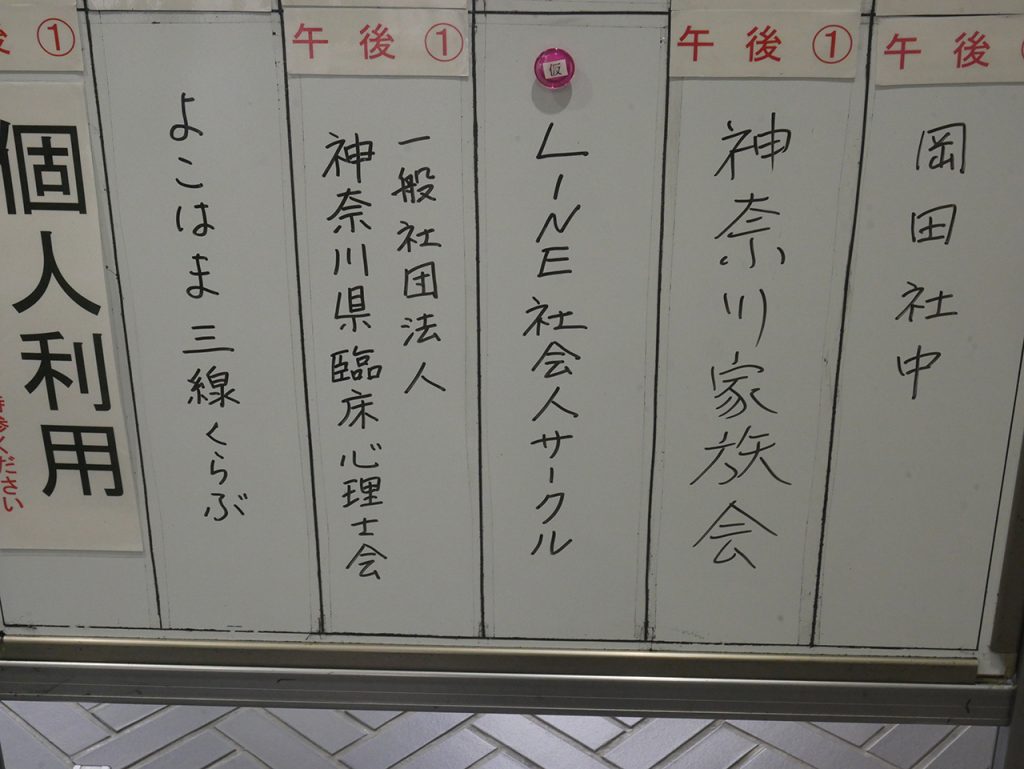 午後①
岡田社中
午後①
神奈川家族会
仮
LINE社会人サークル
午後①
一般社団法人
神奈川県臨床心理士会
よこはま三線くらぶ
後①
個人利用
ください